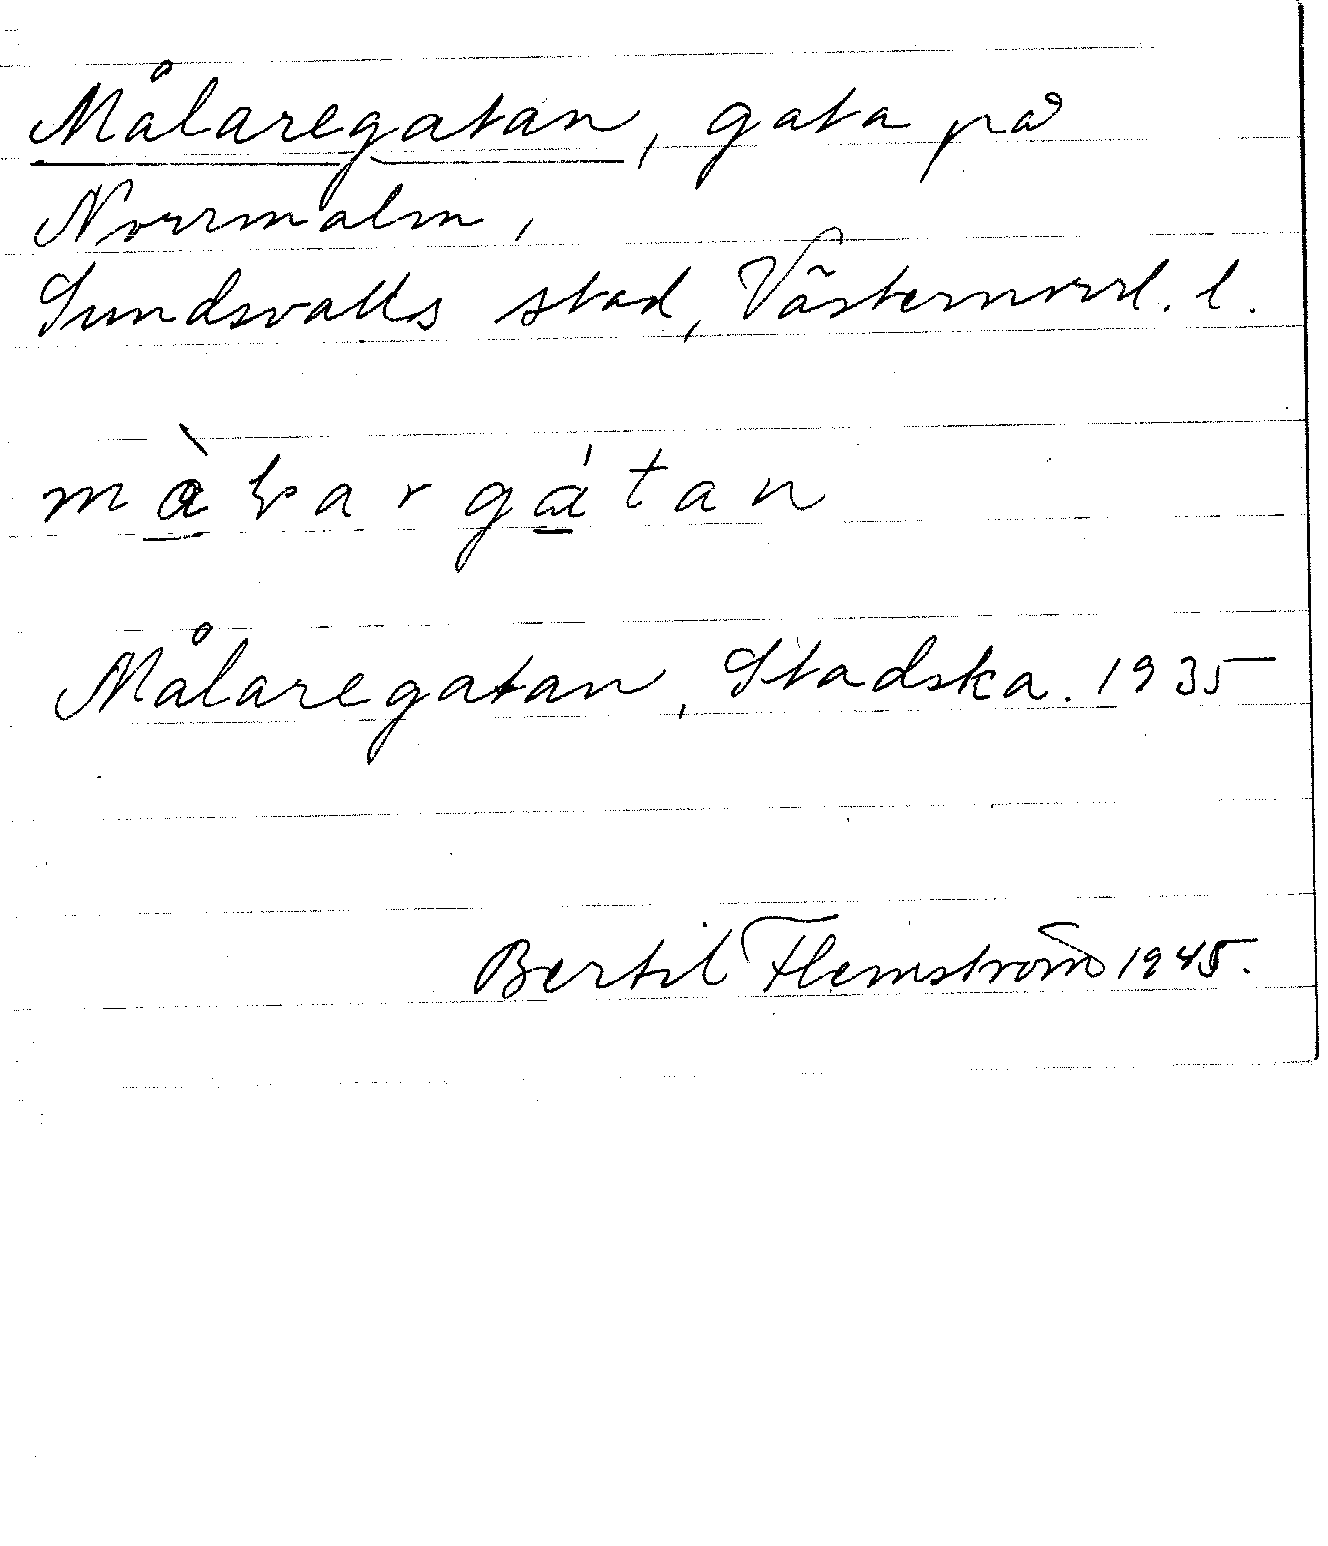 Målaregatan, gata på
Norrmalm,
Sundsvalls stad, Västernorrl. l.
Målaregatan, Stadska. 1935
Bertil Flemström 1945.